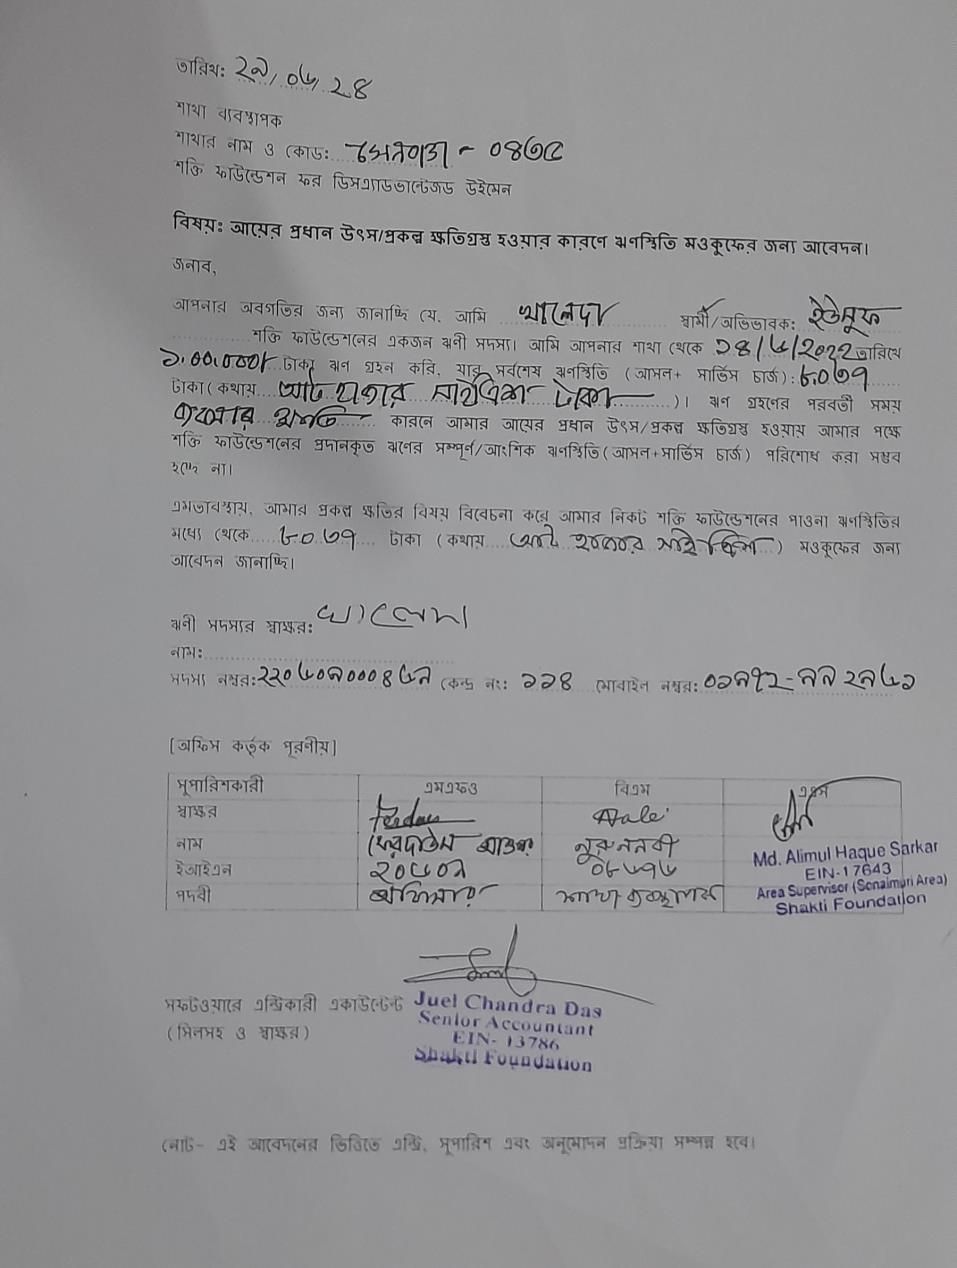 তারিখ: ২৯/০৬/২৪
শাখা ব্যবস্থাপক
শাখার নাম ও কোড: সেনবাগ - ০৪৩৫
শক্তি ফাউন্ডেশন ফর ডিসএ্যাডভান্টেজড উইমেন
বিষয়: আয়ের প্রধান উৎস/প্রকল্প ক্ষতিগ্রস্থ হওয়ার কারণে ঋণস্থিতি মওকুফের জন্য আবেদন।
জনাব,
আপনার অবগতির জন্য জানাচ্ছি যে, আমি খালেদা স্বামী/অভিভাবক: ইউসুফ
শক্তি ফাউন্ডেশনের একজন ঋণী সদস্য। আমি আপনার শাখা থেকে ১৪/৬/২০২২ তারিখে
১,০০,০০০/- টাকা ঋণ গ্রহন করি, যার সর্বশেষ ঋণস্থিতি (আসল+ সার্ভিস চার্জ): ৮০৩৭
টাকা (কথায় আট হাজার সাইত্রিশ টাকা)। ঋণ গ্রহণের পরবর্তী সময়
ব্যবসার ক্ষতি কারনে আমার আয়ের প্রধান উৎস/প্রকল্প ক্ষতিগ্রস্থ হওয়ায় আমার পক্ষে
শক্তি ফাউন্ডেশনের প্রদানকৃত ঋণের সম্পূর্ণ/আংশিক ঋণস্থিতি (আসল+সার্ভিস চার্জ) পরিশোধ করা সম্ভব
হচ্ছে না।
এমতাবস্থায়, আমার প্রকল্প ক্ষতির বিষয় বিবেচনা করে আমার নিকট শক্তি ফাউন্ডেশনের পাওনা ঋণস্থিতির
মধ্যে থেকে ৮০৩৭ টাকা (কথায় আট হাজার সাইত্রিশ) মওকুফের জন্য
আবেদন জানাচ্ছি।
ঋণী সদস্যর স্বাক্ষর: খালেদা
নাম:
সদস্য নম্বর: ২২০৬০৯০০০৪৬৯ কেন্দ্র নং: ১১৪ মোবাইল নম্বর: ০১৯৭২-৯৯২৯৬১
[অফিস কর্তৃক পূরণীয়]
সুপারিশকারী এমএফও বিএম এএস
স্বাক্ষর
নাম ফেরদাউস নুরুননবী
Md. Alimul Haque Sarkar
ইআইএন ২০৬০৯ ০৮৬৭৬ EIN-17643
পদবী অফিসার শাখা ব্যবস্থাপক Area Supervisor (Sonaimuri Area)
Shakti Foundation
সফটওয়ারে এন্ট্রিকারী একাউন্টেন্ট Juel Chandra Das
(সিলসহ ও স্বাক্ষর) Senior Accountant
EIN- 13786
Shakti Foundation
নোট- এই আবেদনের ভিত্তিতে এন্ট্রি, সুপারিশ এবং অনুমোদন প্রক্রিয়া সম্পন্ন হবে।